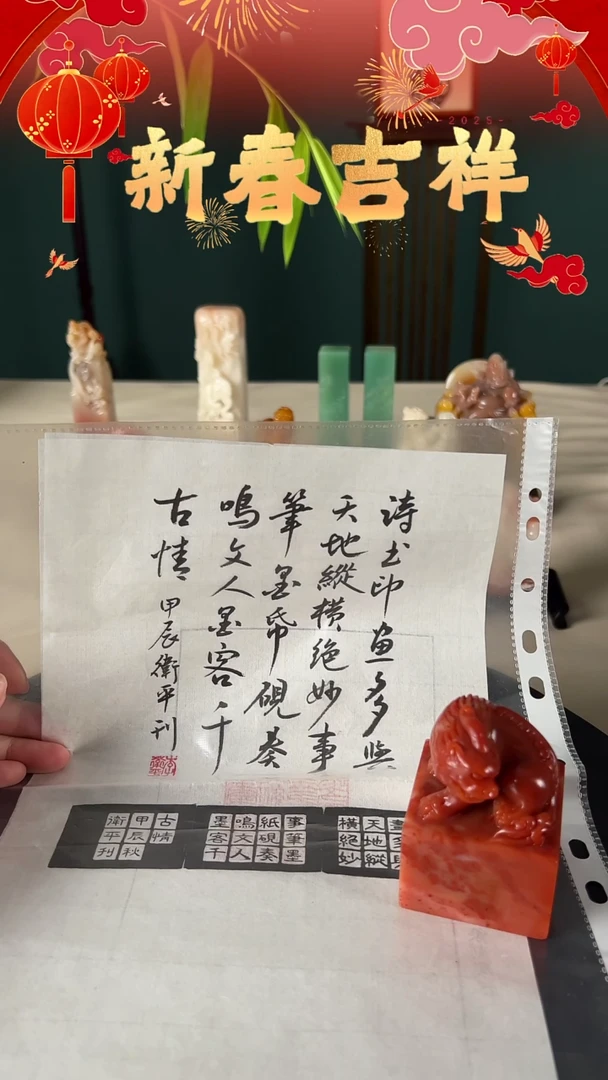 -2025-
新春吉祥
詩書印畫多與
天地縱橫絕妙事
筆墨帋硯奏
鳴文人墨客千
古情 甲辰衛平刊
天地縱
橫絕妙
事筆墨
紙硯奏
鳴文人
墨客千
古情
甲辰秋
衛平刊